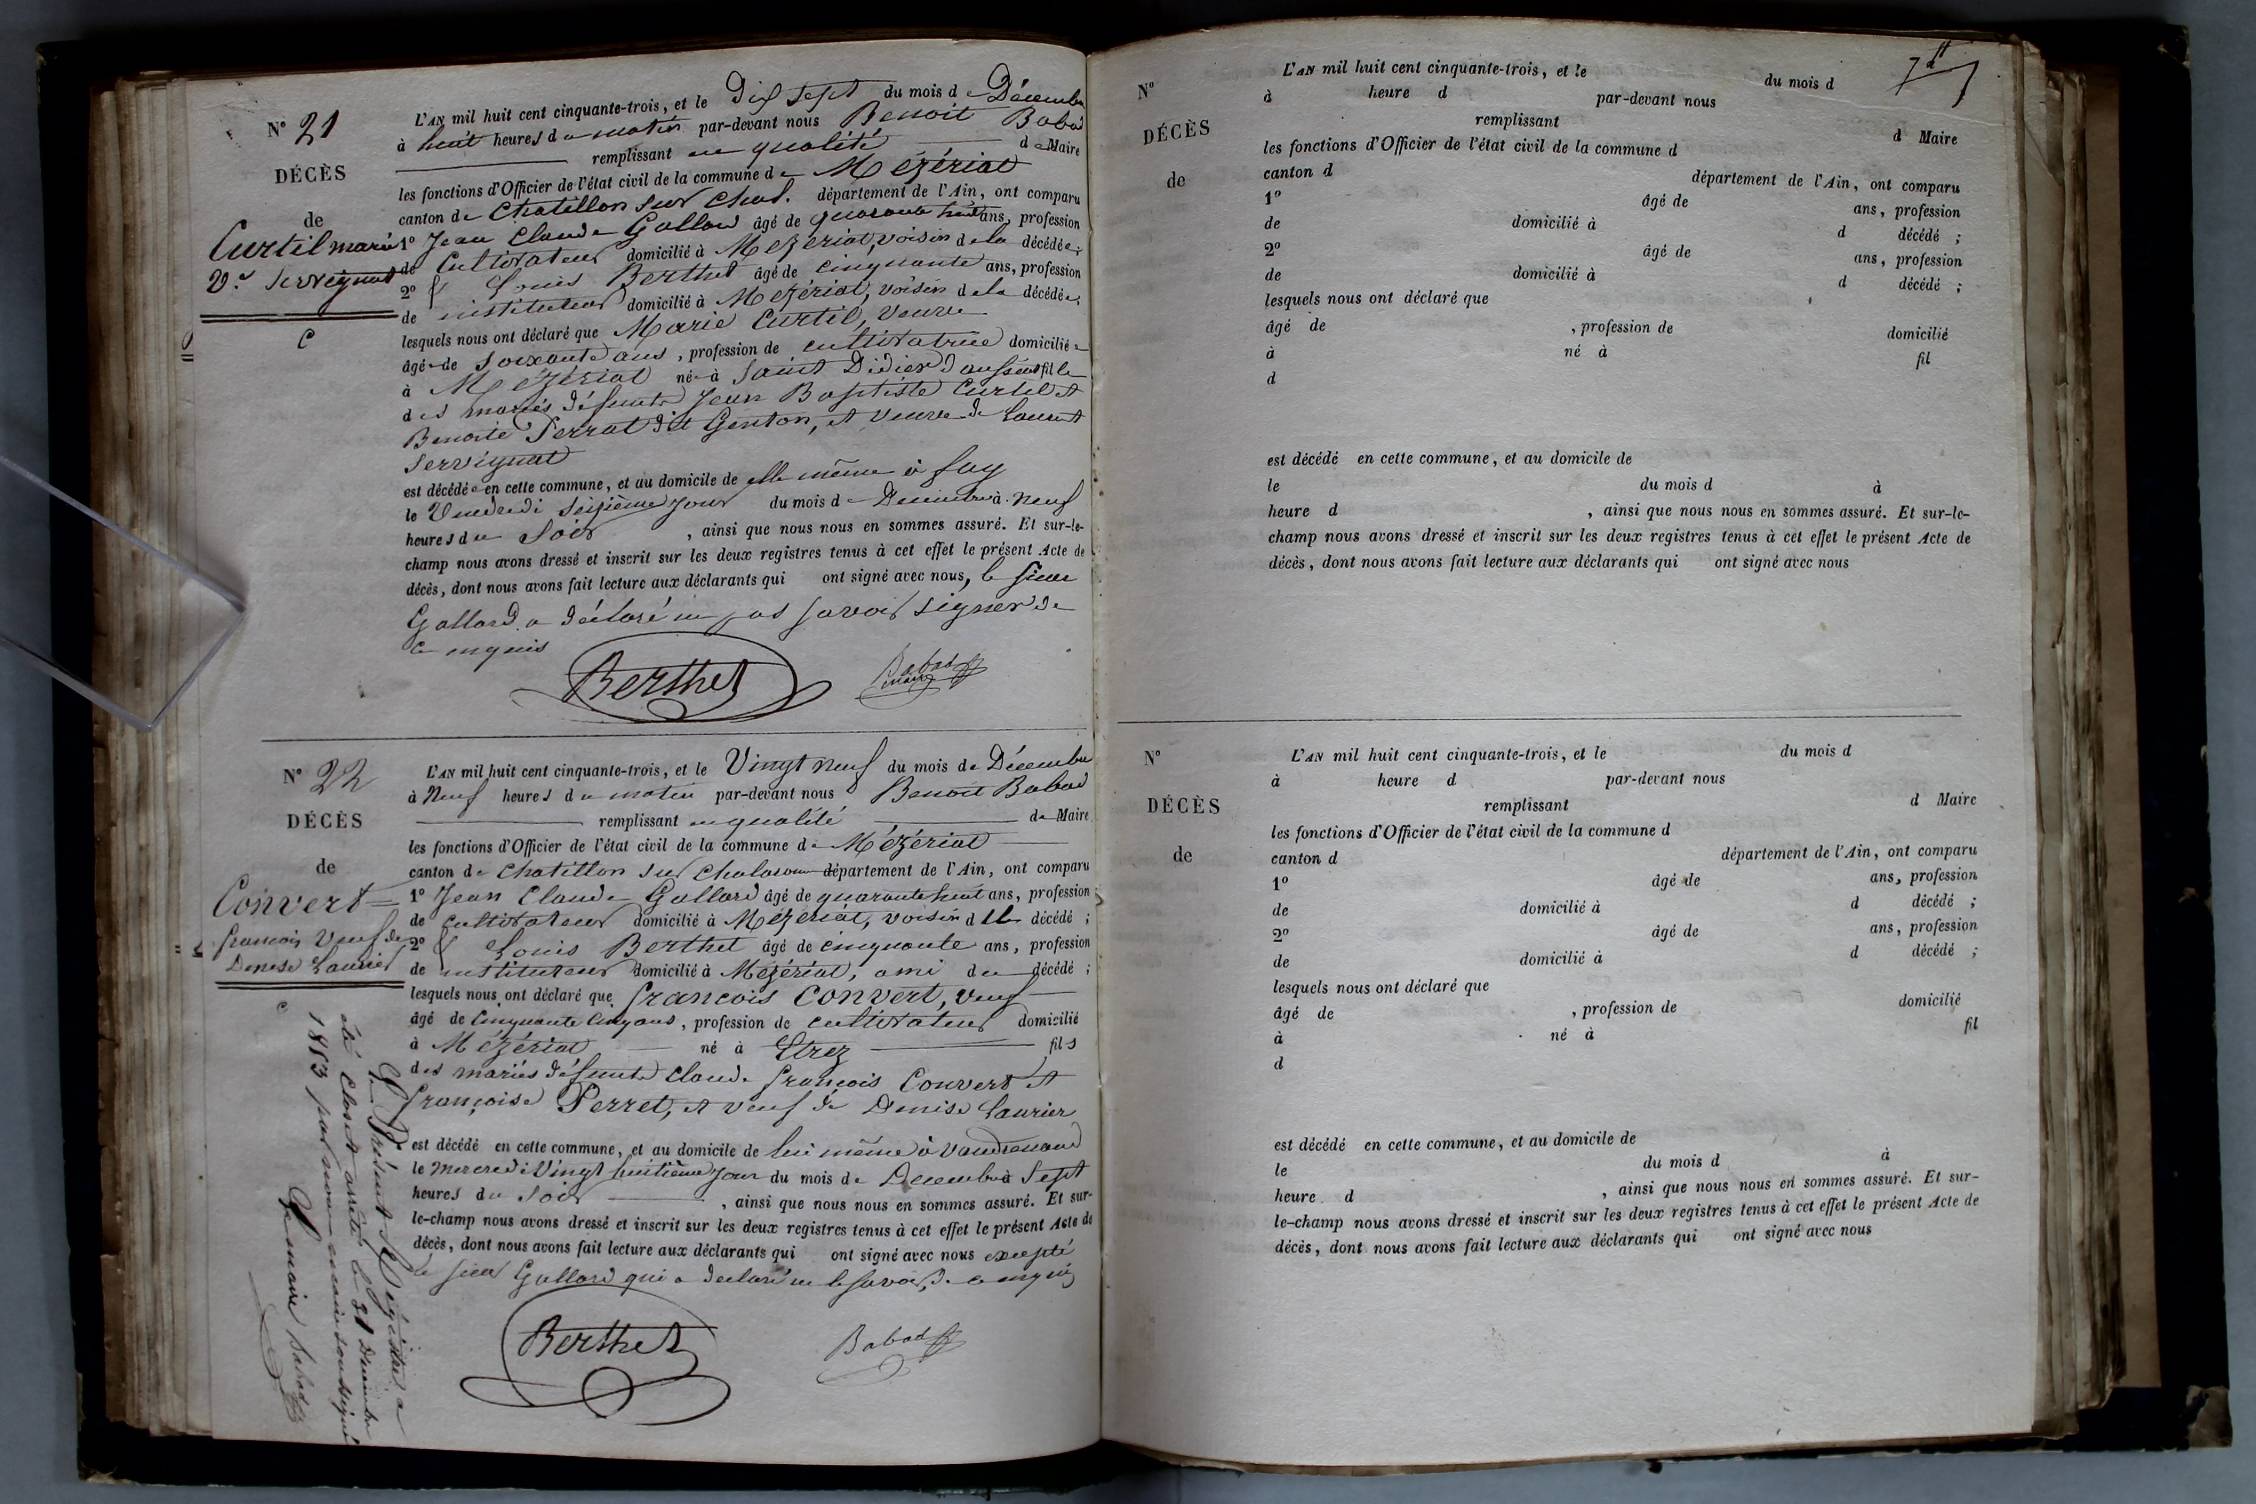 N° 21
DÉCÈS
de
Curtil marie
Ve Servignat
C
L'AN mil huit cent cinquante-trois, et le Dix Sept du mois de Décembre
à huit heures du matin par-devant nous Benoit Babad
remplissant en qualité de Maire
les fonctions d'Officier de l'état civil de la commune de Mézériat
canton de Chatillon sur Chal. département de l'Ain, ont comparu
1° Jean Claude Galland âgé de quarante huit ans, profession
de Cultivateur domicilié à Mézériat, voisin de la décédée;
2° Louis Berthet âgé de cinquante ans, profession
de instituteur domicilié à Mézériat, voisin de la décédée;
lesquels nous ont déclaré que Marie Curtil, veuve
âgée de soixante ans, profession de cultivatrice domiciliée
à Mézériat née à Saint Didier d'aussiat fille
des mariés défunts Jean Baptiste Curtil et
Benoite Perrat dit Genton, et veuve de Laurent
Servignat
est décédée en cette commune, et au domicile de elle même à fay
le Vendredi Seizième jour du mois de Décembre à neuf
heures du Soir, ainsi que nous nous en sommes assuré. Et sur-le-
champ nous avons dressé et inscrit sur les deux registres tenus à cet effet le présent Acte de
décès, dont nous avons fait lecture aux déclarants qui ont signé avec nous, le sieur
Gallard a déclaré ne pas savoir signer de
ce enquis
Berthet
Babad
maire
N° 22
DÉCÈS
de
Convert
francois Veuf de
Denise Laurier
C
L'AN mil huit cent cinquante-trois, et le Vingt neuf du mois de Décembre
à Neuf heures du matin par-devant nous Benoit Babad
remplissant en qualité de Maire
les fonctions d'Officier de l'état civil de la commune de Mézériat
canton de Chatillon sur Chalaronne département de l'Ain, ont comparu
1° Jean Claude Gallard âgé de quarante huit ans, profession
de cultivateur domicilié à Mézériat, voisin du décédé;
2° Louis Berthet âgé de cinquante ans, profession
de instituteur domicilié à Mézériat, ami du décédé;
lesquels nous ont déclaré que francois Convert, veuf
âgé de Cinquante Cinq ans, profession de cultivateur domicilié
à Mézériat né à Etrez fils
des mariés défunts Claude françois Convert et
françoise Perret, et veuf de Denise Laurier
est décédé en cette commune, et au domicile de lui même à Vaudrenand
le Mercredi Vingt huitième jour du mois de Décembre à Sept
heures du Soir, ainsi que nous nous en sommes assuré. Et sur-
le-champ nous avons dressé et inscrit sur les deux registres tenus à cet effet le présent Acte de
décès, dont nous avons fait lecture aux déclarants qui ont signé avec nous excepté
le sieur Gallard qui a déclaré ne le savoir, de ce enquis
Berthet
Babad
Le Présent Registre a
été Clos et arrêté le 31 Décembre
1853 par nous maire soussigné
Le maire Babad
7d
N°
DÉCÈS
de
L'AN mil huit cent cinquante-trois, et le du mois d
à heure d par-devant nous
remplissant d Maire
les fonctions d'Officier de l'état civil de la commune d
canton d département de l'Ain, ont comparu
1° âgé de ans, profession
de domicilié à d décédé;
2° âgé de ans, profession
de domicilié à d décédé;
lesquels nous ont déclaré que
âgé de , profession de domicilié
à né à fil
d
est décédé en cette commune, et au domicile de
le du mois d à
heure d , ainsi que nous nous en sommes assuré. Et sur-le-
champ nous avons dressé et inscrit sur les deux registres tenus à cet effet le présent Acte de
décès, dont nous avons fait lecture aux déclarants qui ont signé avec nous
N°
DÉCÈS
de
L'AN mil huit cent cinquante-trois, et le du mois d
à heure d par-devant nous
remplissant d Maire
les fonctions d'Officier de l'état civil de la commune d
canton d département de l'Ain, ont comparu
1° âgé de ans, profession
de domicilié à d décédé;
2° âgé de ans, profession
de domicilié à d décédé;
lesquels nous ont déclaré que
âgé de , profession de domicilié
à né à fil
d
est décédé en cette commune, et au domicile de
le du mois d à
heure d , ainsi que nous nous en sommes assuré. Et sur-
le-champ nous avons dressé et inscrit sur les deux registres tenus à cet effet le présent Acte de
décès, dont nous avons fait lecture aux déclarants qui ont signé avec nous